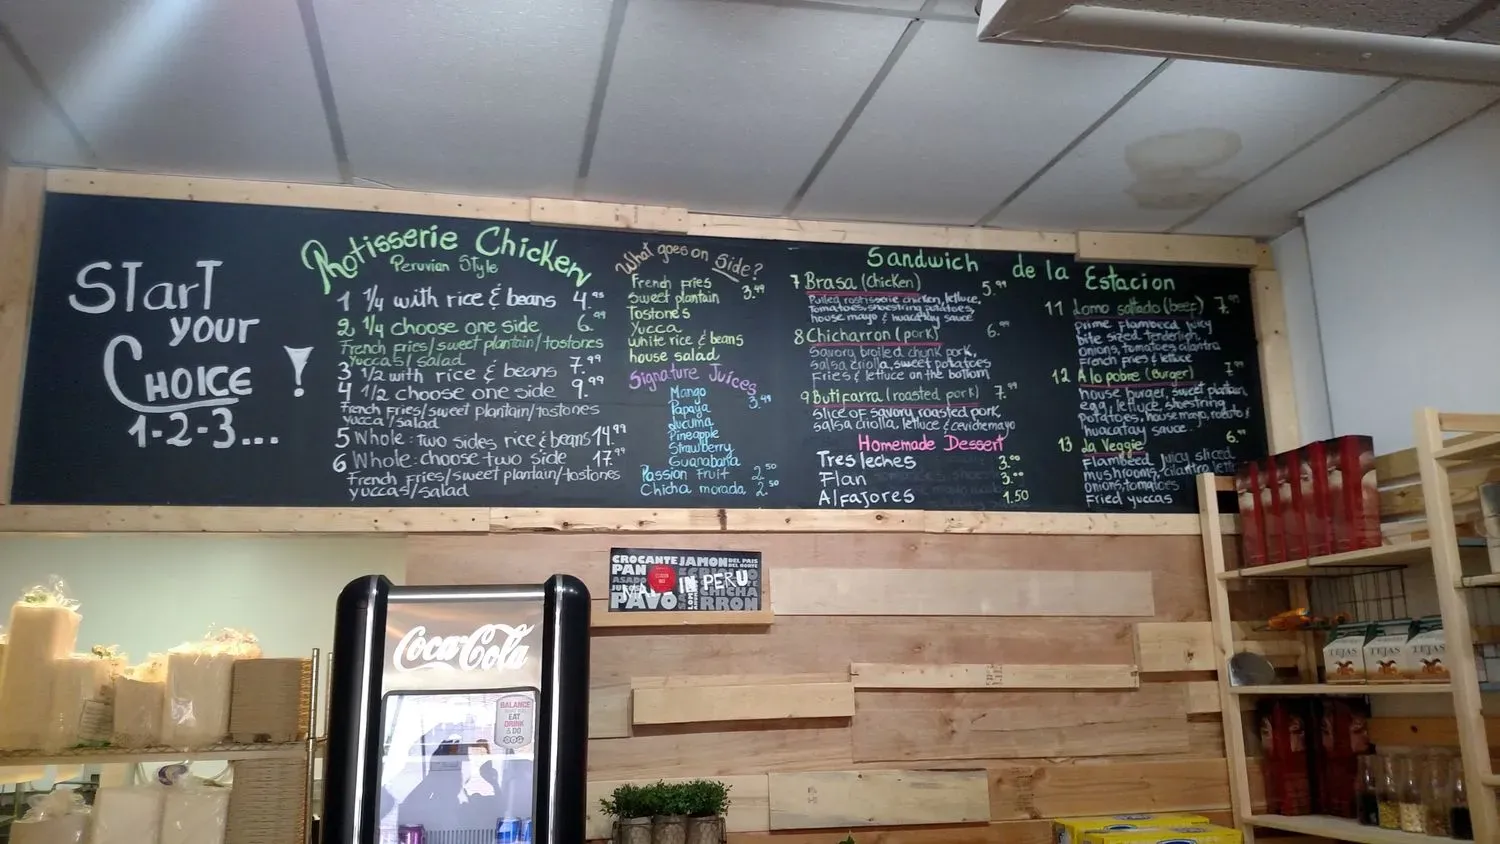 START
YOUR
CHOICE !
1-2-3...
Rotisserie Chicken
Peruvian Style
1 1/4 with rice & beans 4.95
2 1/4 choose one side 6.99
French fries/sweet plantain/tostones
yuccas/salad
3 1/2 with rice & beans 7.99
4 1/2 choose one side 9.99
French Fries/sweet plantain/tostones
yucca/salad
5 Whole: Two sides rice & beans 14.99
6 Whole: choose two side 17.99
French Fries/sweet plantain/tostones
yuccas/salad
What goes on side?
French fries 3.49
Sweet plantain
Tostone's
Yucca
white rice & beans
house salad
Signature Juices
Mango 3.99
Papaya
Lucuma
Pineapple
Strawberry
Guanabana
Passion Fruit 2.50
Chicha morada 2.50
Sandwich de la Estacion
7 Brasa (chicken) 5.99
Pulled rostisserie chicken, lettuce,
Tomatoes, shoestring potatoes,
house mayo & huacatay sauce
8 Chicharron (pork) 6.99
Savory broiled chunk pork,
salsa criolla, sweet potatoes
Fries & lettuce on the bottom
9 Butifarra (roasted pork) 7.99
slice of savory roasted pork,
salsa criolla, lettuce & cevichemayo
Homemade Dessert
Tres leches 3.00
Flan 3.00
Alfajores 1.50
11 Lomo saltado (beef) 7.99
prime flambeed juicy
bite sized tenderloin,
onions, tomatoes cilantro
French fries & lettuce
12 A lo pobre (Burger) 7.99
house burger, sweet plantain,
egg, lettuce, shoestring
potatoes, house mayo, rocoto &
huacatay sauce.
13 La Veggie 6.99
Flambeed juicy sliced
mushrooms, cilantro
onions, tomatoes
Fried yuccas
CROCANTE JAMON DEL PAIS
PAN
ASADO
MADE IN PERU
PAVO CHICHARRON
Coca-Cola
BALANCE
EAT
DRINK
& DO
TEJAS TEJAS TEJAS